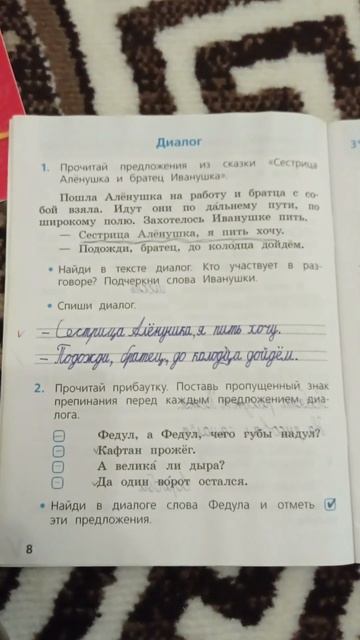 Диалог
1. Прочитай предложения из сказки «Сестрица
Алёнушка и братец Иванушка».
Пошла Алёнушка на работу и братца с со-
бой взяла. Идут они по дальнему пути, по
широкому полю. Захотелось Иванушке пить.
— Сестрица Алёнушка, я пить хочу.
— Подожди, братец, до колодца дойдём.
• Найди в тексте диалог. Кто участвует в раз-
говоре? Подчеркни слова Иванушки.
• Спиши диалог.
– Сестрица Алёнушка, я пить хочу.
– Подожди, братец, до колодца дойдём.
2. Прочитай прибаутку. Поставь пропущенный знак
препинания перед каждым предложением диа-
лога.
– Федул, а Федул, чего губы надул?
– ✓Кафтан прожёг.
– А велика́ ли дыра?
– ✓Да один во́рот остался.
• Найди в диалоге слова Федула и отметь ✓
эти предложения.
8